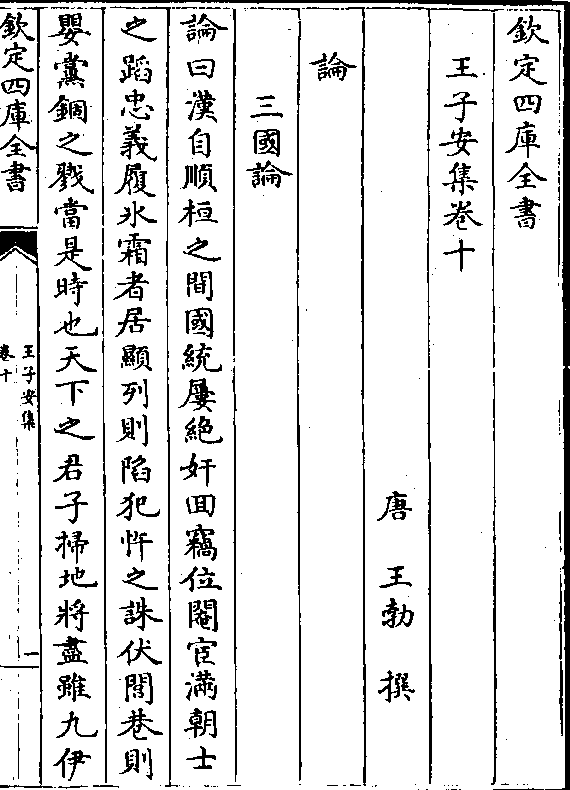 欽定四庫全書
王子安集卷十
唐 王勃 撰
論
三國論
論曰漢自順桓之間國統屢絶奸回竊位閹宦滿朝士
之蹈忠義履氷霜者居顯列則陷犯忤之誅伏閭巷則
嬰黨錮之戮當是時也天下之君子掃地將盡雖九伊
欽定四庫全書
王子安集
卷十
一